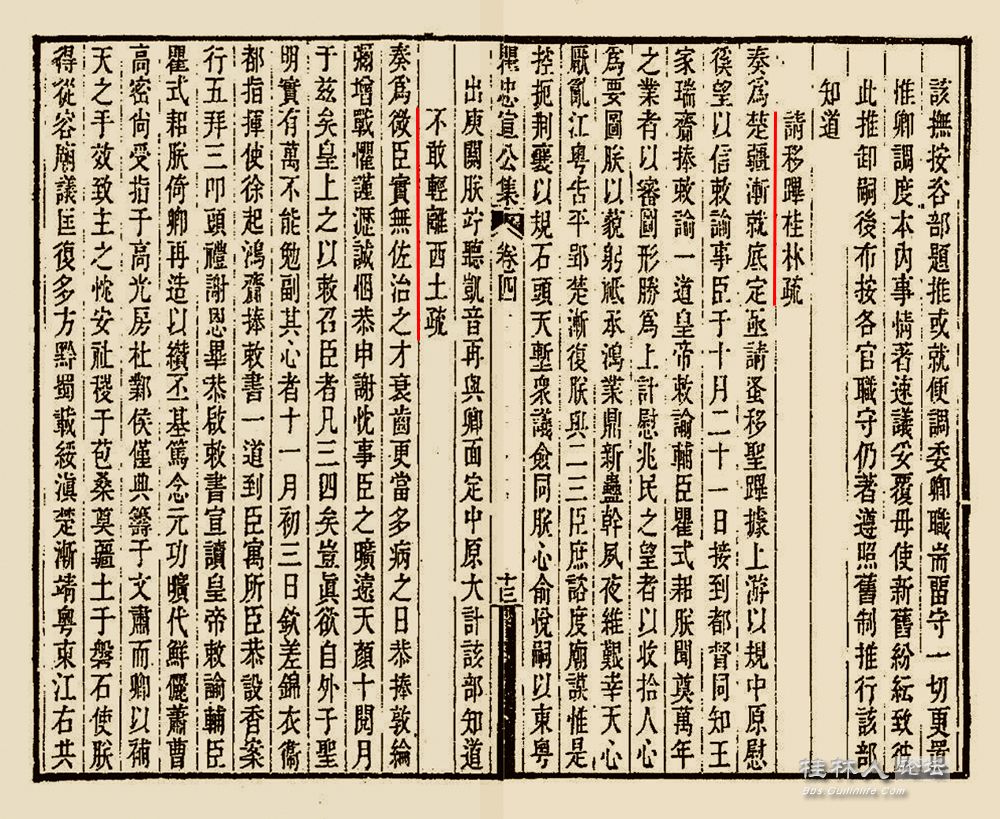 該撫按咨部題推或就便調委卿職耑畱守一切更置
惟卿調度本內事情著速議妥覆毋使新舊紛紜致彼
此推卸嗣後布按各官職守仍著遵照舊制推行該部
知道
請移蹕桂林疏
奏爲楚疆漸就底定亟請蚤移聖蹕據上游以規中原慰
徯望以信敕諭事臣于十月二十一日接到都督同知王
家瑞齎捧敕諭一道皇帝敕諭輔臣瞿式耜朕聞奠萬年
之業者以審圖形勝爲上計慰兆民之望者以收拾人心
爲要圖朕以藐躬祗承鴻業鼎新蠱幹夙夜維艱幸天心
厭亂江粤告平郢楚漸復朕與二三臣庶諮度廟謨惟是
控扼荆襄以規石頭天塹衆議僉同朕心俞悅嗣以東粤
瞿忠宣公集
卷四
十三
出庚關朕竚聽凱音再與卿面定中原大計該部知道
不敢輕離西土疏
奏爲微臣實無佐治之才衰齒更當多病之日恭捧敦綸
彌增戰懼謹瀝誠悃恭申謝忱事臣之曠遠天顏十閱月
于兹矣皇上之以敕召臣者凡三四矣豈眞欲自外于聖
明實有萬不能勉副其心者十一月初三日欽差錦衣衞
都指揮使徐起鴻齎捧敕書一道到臣寓所臣恭設香案
行五拜三叩頭禮謝恩畢恭啟敕書宣讀皇帝敕諭輔臣
瞿式耜朕倚卿再造以纘丕基篤念元功曠代鮮儷蕭曹
高密尙受指于高光房杜鄴侯僅典籌于文肅而卿以補
天之手效致主之忱安祉稷于苞桑奠疆土于磐石使朕
得從容廟議匡復多方黔蜀載綏滇楚漸靖粤東江右共
桂林人论坛
Bbs.Guilinlife.Com